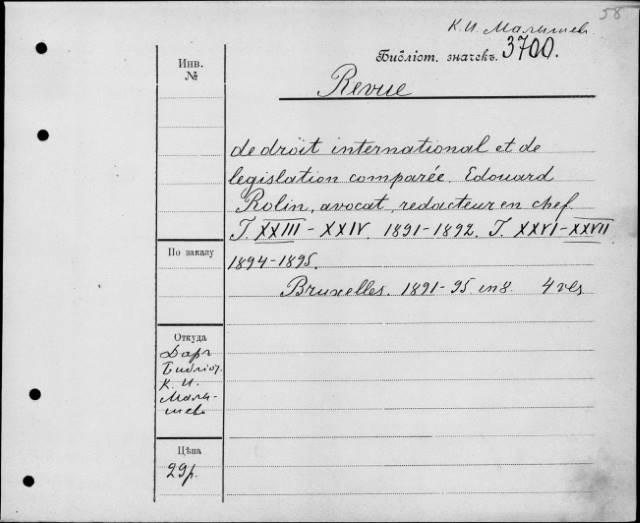 58
К. И. Малышев
Библіот. значекъ. 3700.
Инв.
№
Revue
de droit international et de
legislation comparée. Edouard
Rolin, avocat, redacteur en chef
T. XXIII - XXIV. 1891-1892. T. XXVI-XXVII
По заказу
1894-1895.
Bruxelles. 1891-95 in 8. 4 vls
Откуда
Даръ
Библіот.
К. И.
Малы-
шева
Цѣна
29 р.